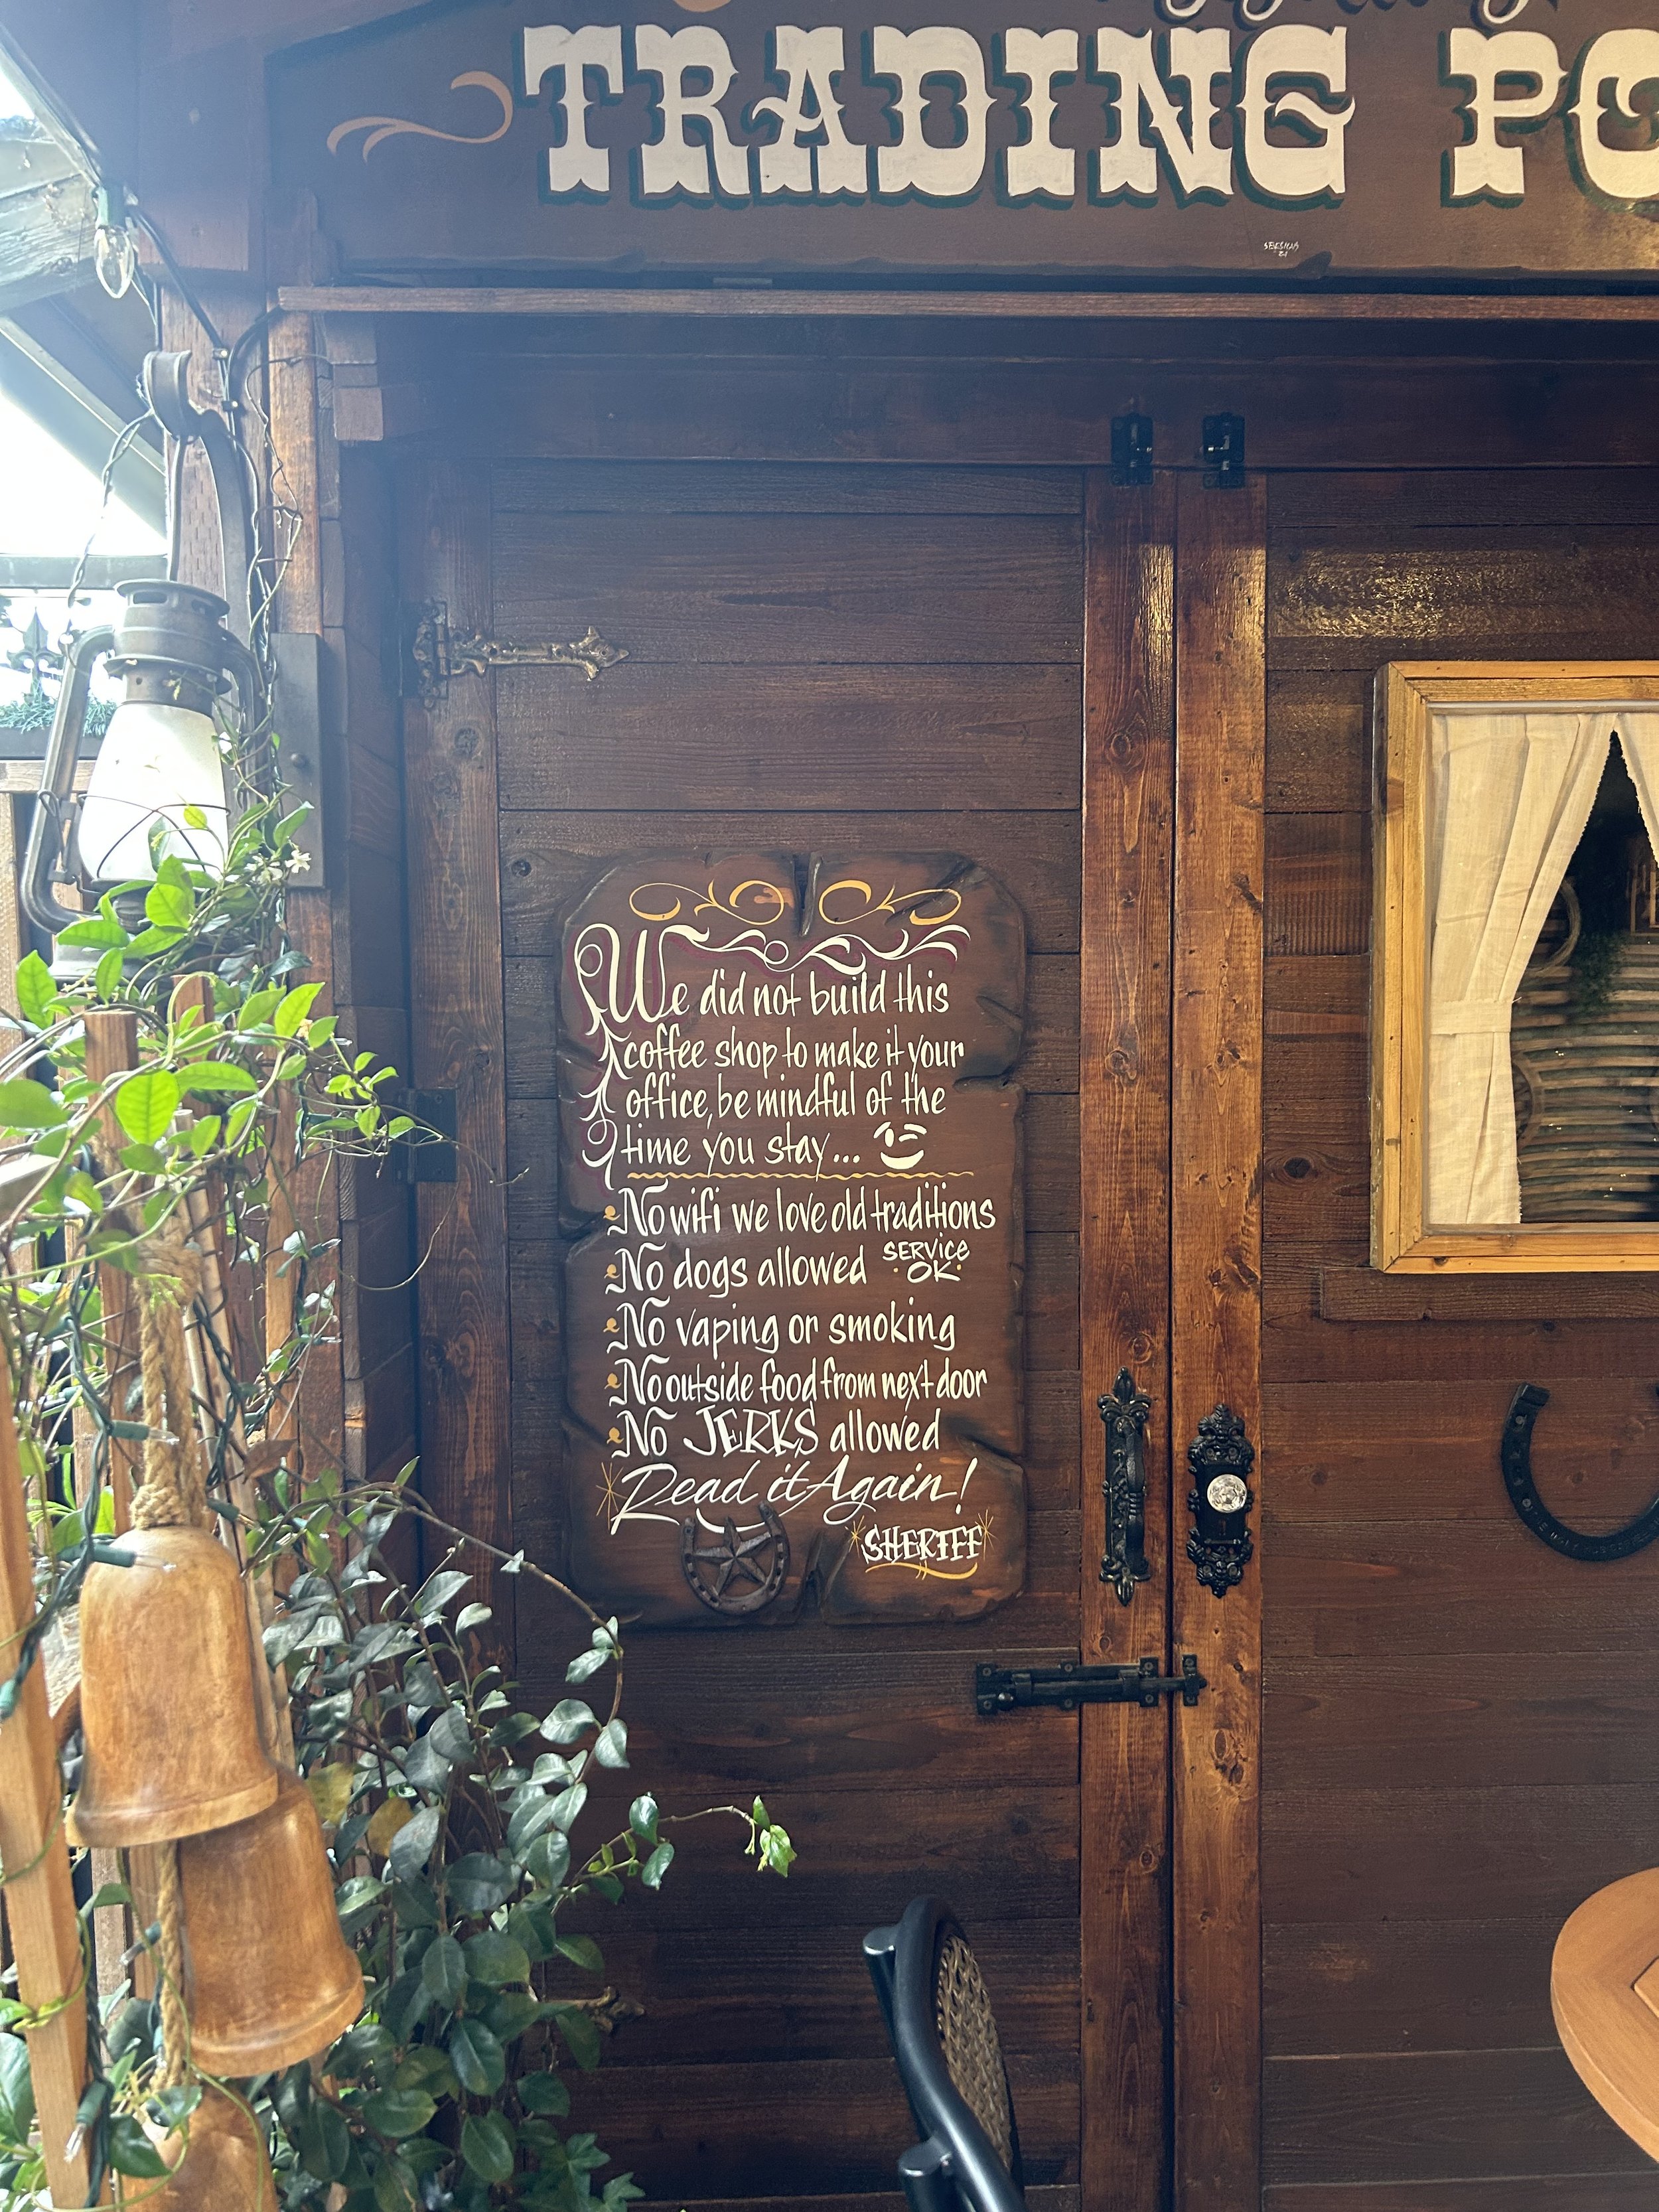 TRADING PO
We did not build this
coffee shop to make it your
office, be mindful of the
time you stay...
No wifi we love old traditions
No dogs allowed SERVICE OK
No vaping or smoking
No outside food from next door
No JERKS allowed
Read it Again!
SHERIFF